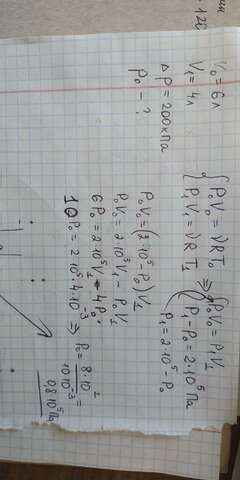 120
V₀ = 6 л
V₁ = 4 л
Δp = 200 кПа
p₀ - ?
{ P₀V₀ = νRT₀
P₁V₁ = νRT₁
⇒ { P₀V₀ = P₁V₁
P₁ - P₀ = 2·10⁵ Па
P₁ = 2·10⁵ - P₀
P₀V₀ = (2·10⁵ - P₀)V₁
P₀V₀ = 2·10⁵V₁ - P₀V₁
6P₀ = 2·10⁵V₁ - 4P₀
10P₀ = 2·10⁵·4·10⁻³ ⇒ P₀ = 8·10² / 10·10⁻³ =
0,8·10⁵ Па